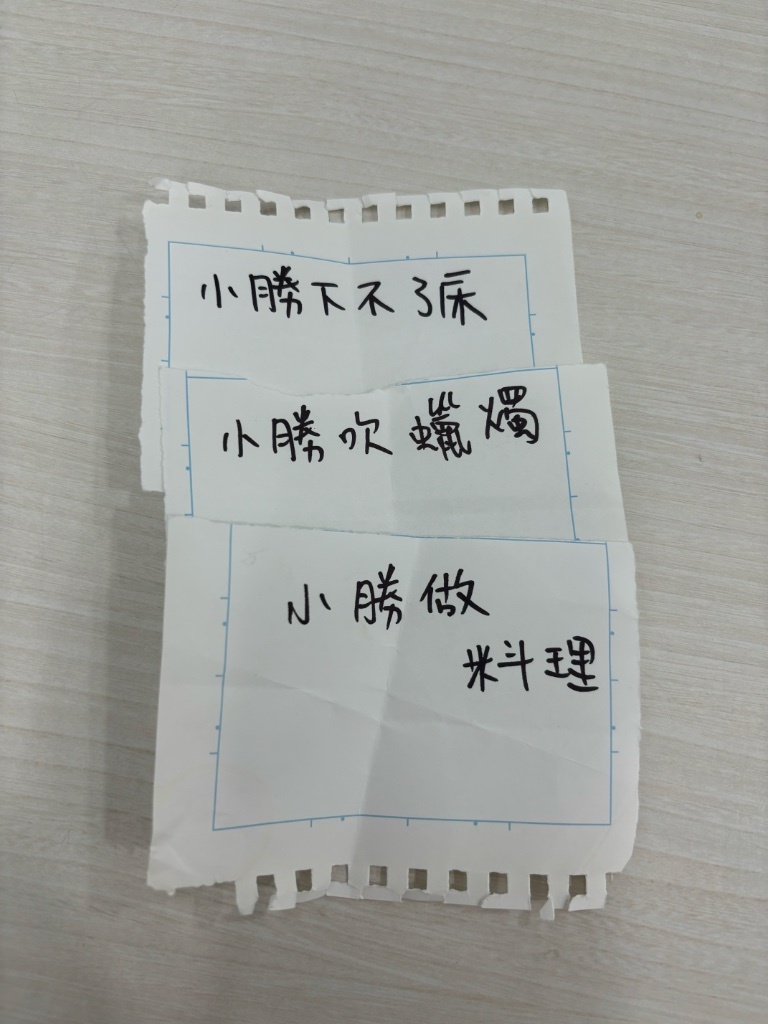 小勝下不了床
小勝吹蠟燭
小勝做
料理